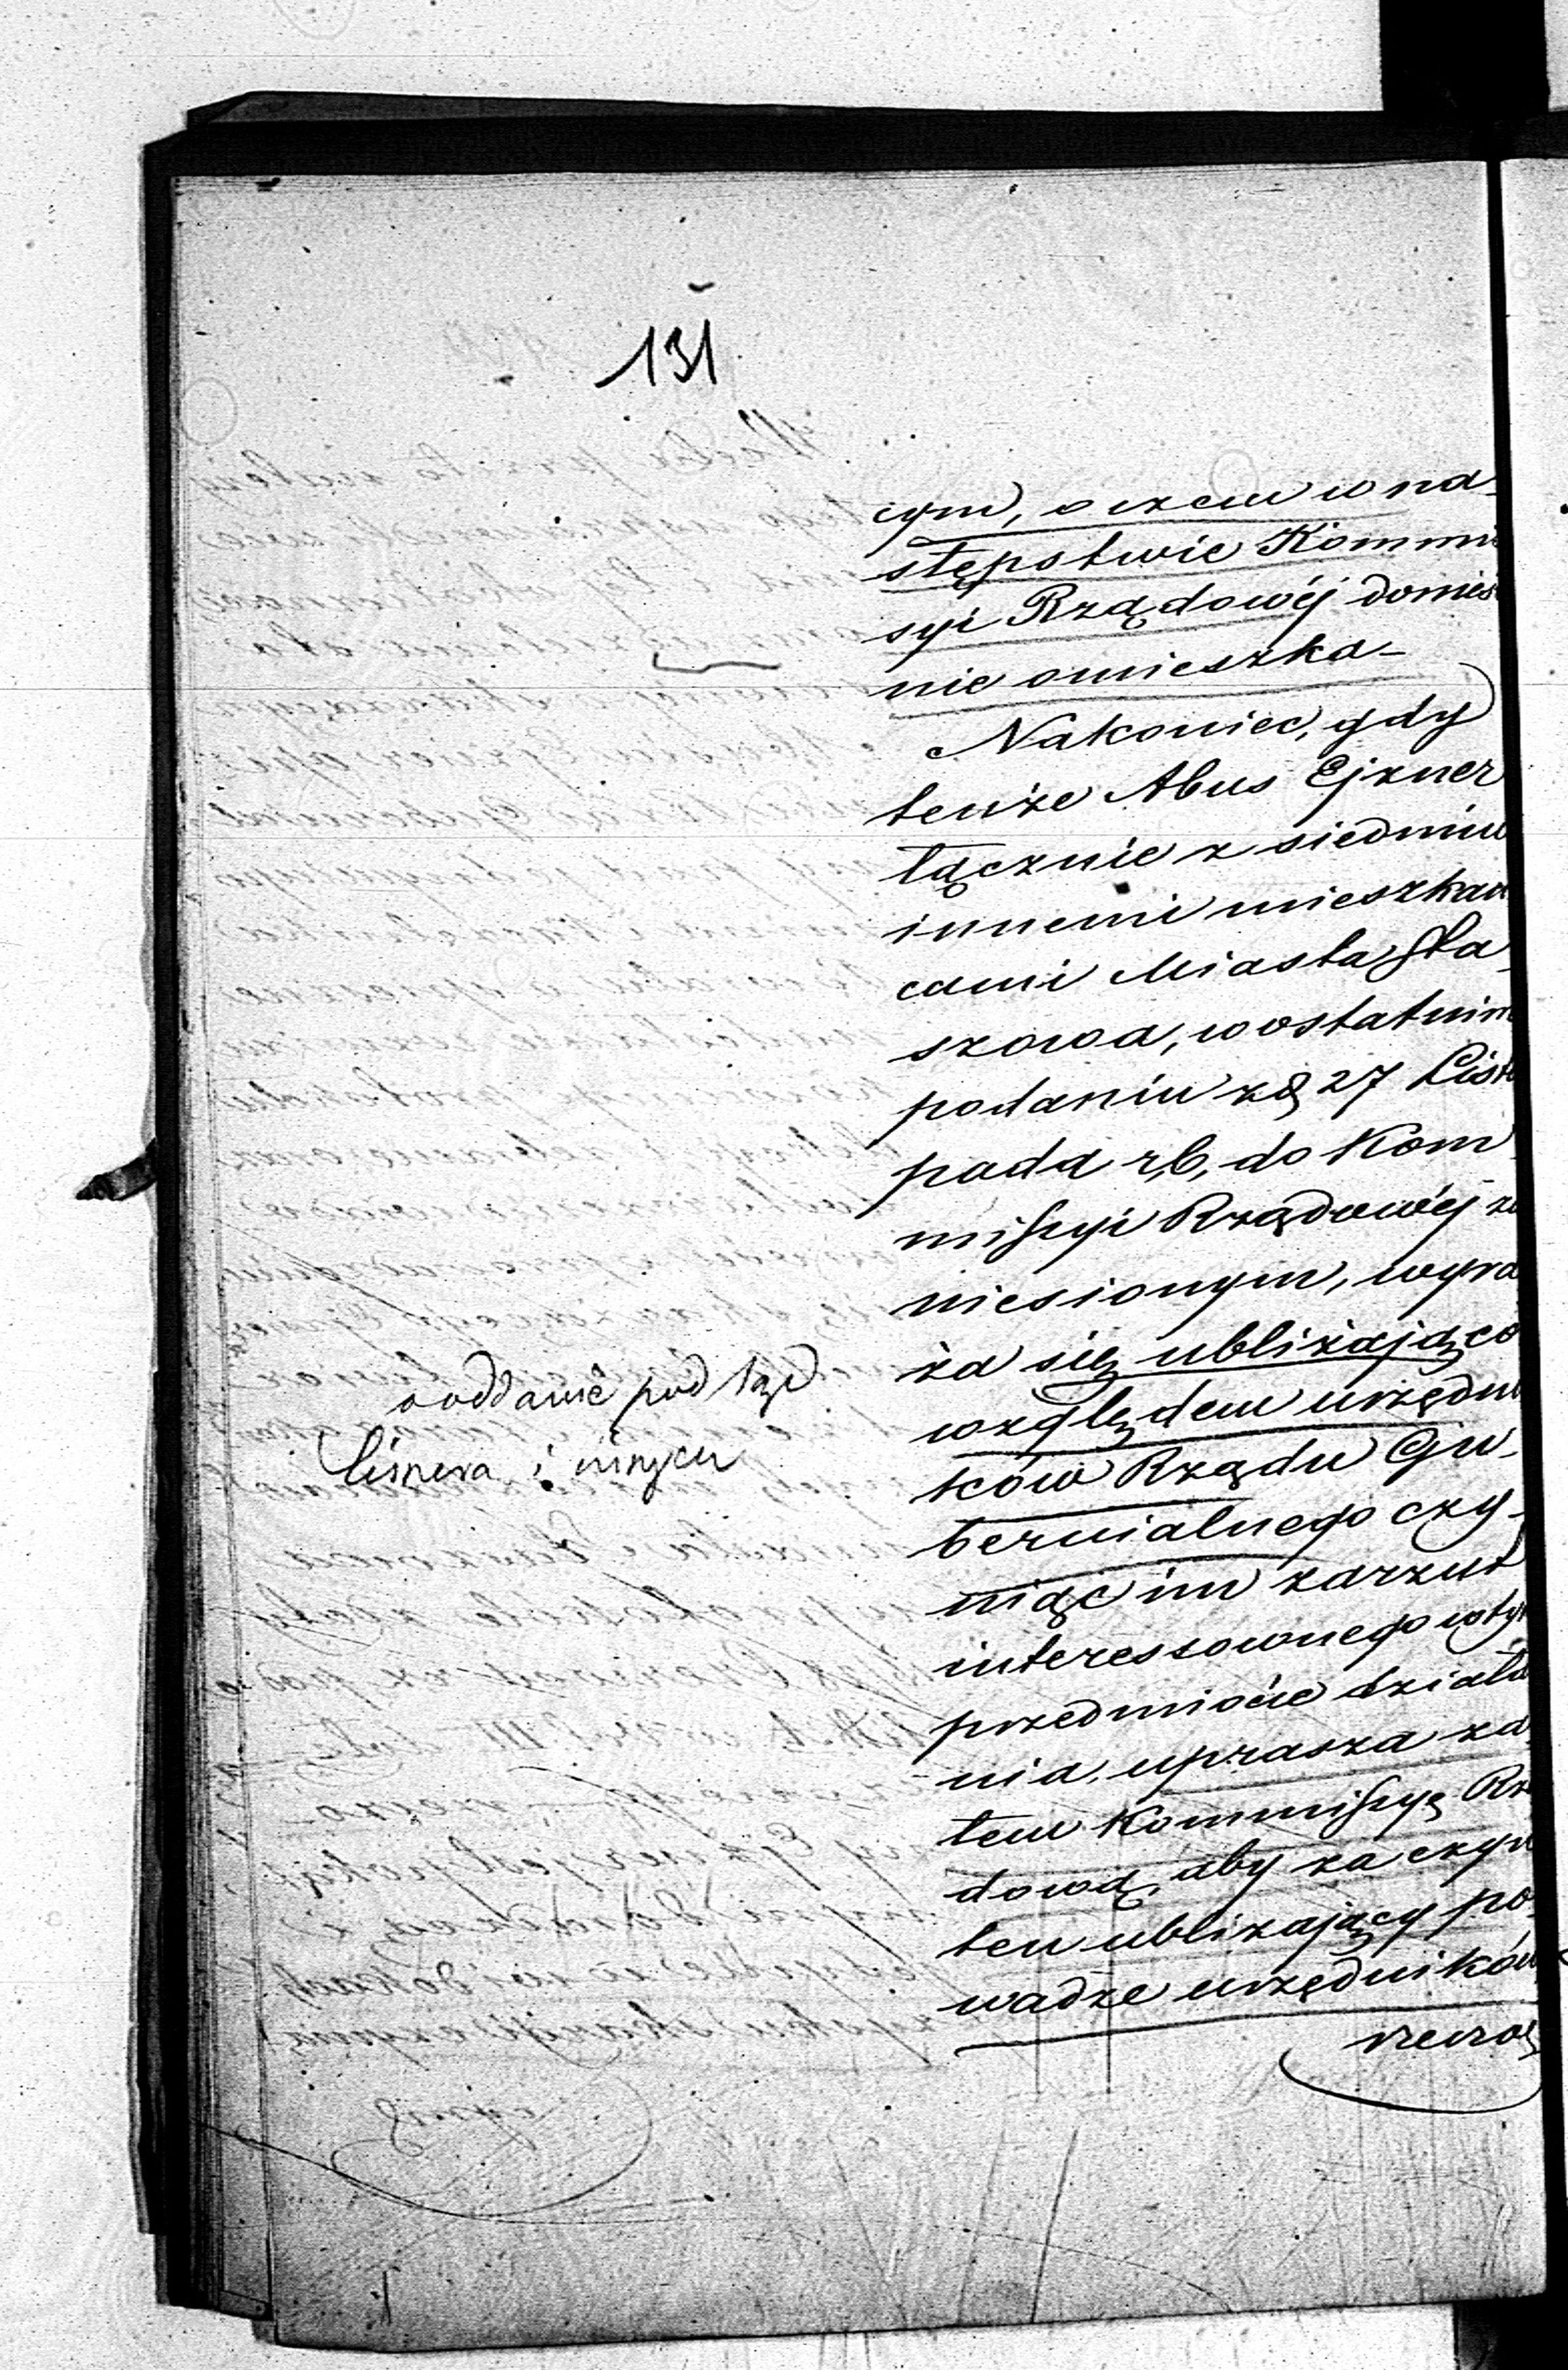 131
cym, o czem w na-
stępstwie Kommi
syi Rządowéj donieś
nie omieszka-
Nakoniec, gdy
tenże Abus Ejzner
łącznie z siedmiu
innemi mieszkań
cami Miasta Sta
szowa, w ostatnim
podaniu z d 27 Listo
pada r, b, do Kom
missyi Rządowéj za
niesionym, wyra
ża się ubliżająco
względem urzędni
ków Rządu Gu-
bernialnego czy-
niąc im zarzut
interessownego w tym
przedmiocie działa
nia, uprasza za
tem Kommissyę Rzą
dową, aby za czyn
ten ubliżający po-
wadze urzędników
o oddanie pod Sąd
i innych